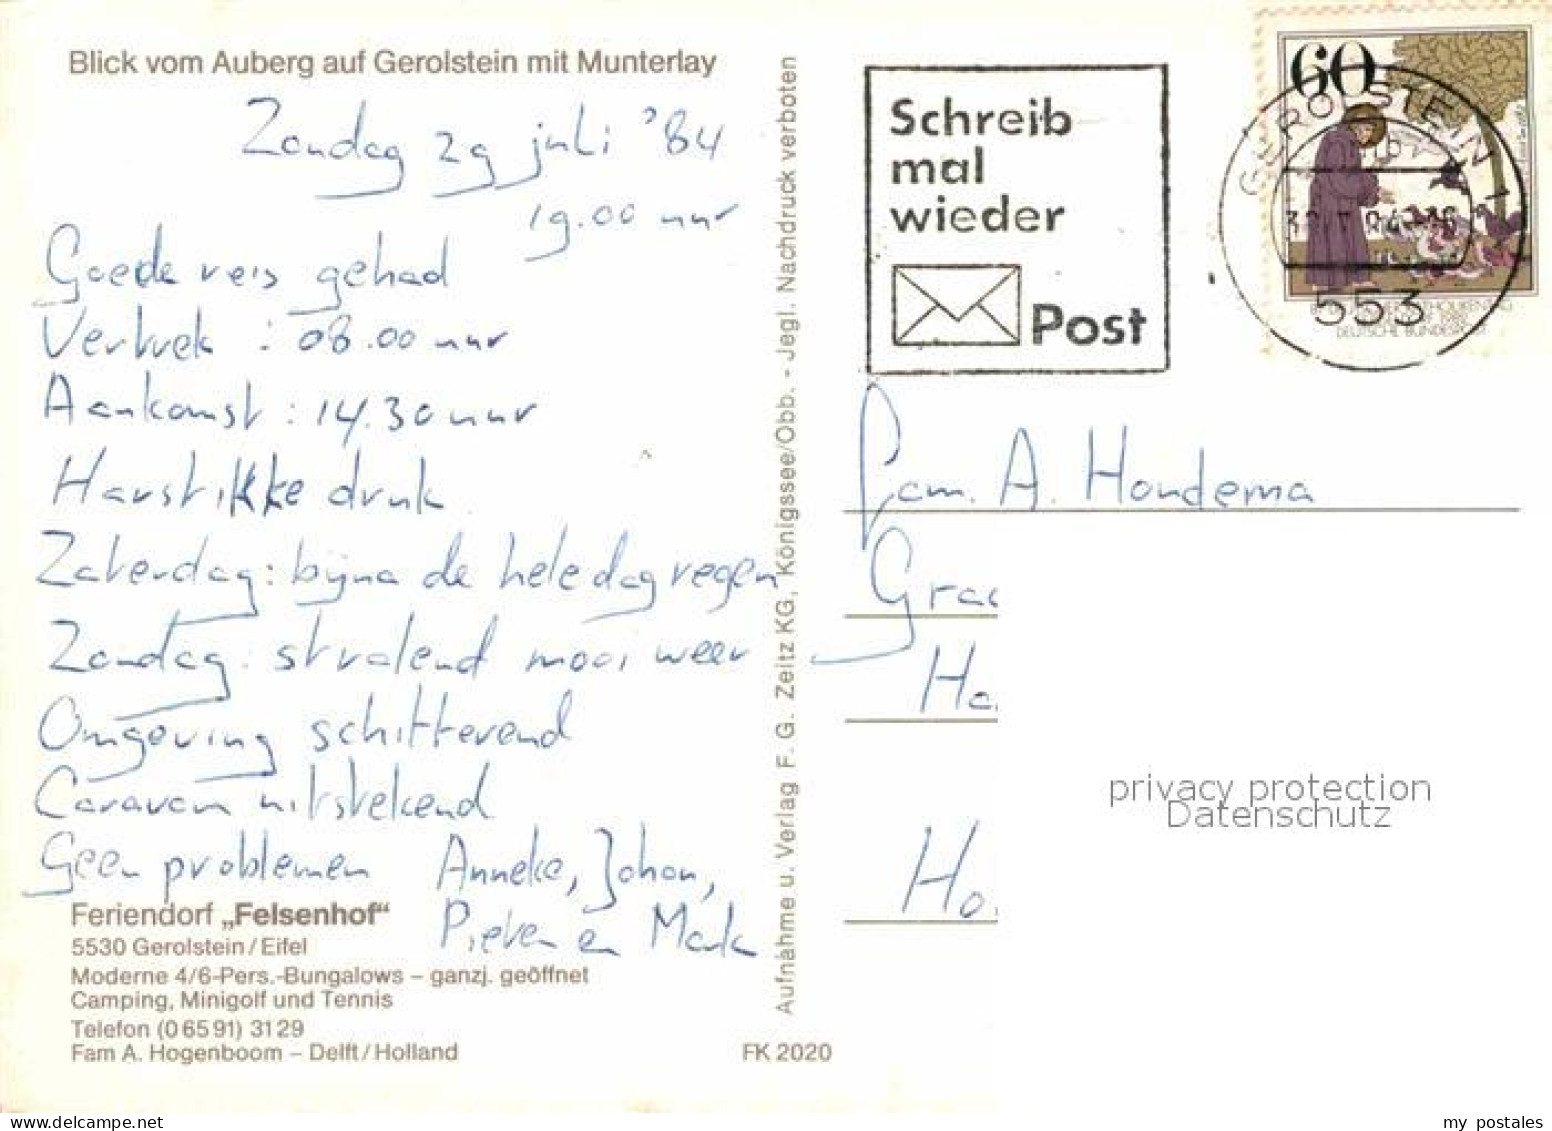 Blick vom Auberg auf Gerolstein mit Munterlay
Zondag 29 juli '84
19.00 uur
Goede reis gehad
Vertrek : 08.00 uur
Aankomst : 14.30 uur
Harstikke druk
Zaterdag : bijna de hele dag regen
Zondag : stralend mooi weer
Omgeving schitterend
Caravan uitstekend
Geen problemen
Anneke, Johan,
Pieter en Mark
Feriendorf „Felsenhof“
5530 Gerolstein/Eifel
Moderne 4/6-Pers.-Bungalows – ganzj. geöffnet
Camping, Minigolf und Tennis
Telefon (0 65 91) 31 29
Fam A. Hogenboom – Delft/Holland
FK 2020
Aufnahme u. Verlag F. G. Zeitz KG, Königssee/Obb. - Jegl. Nachdruck verboten
Schreib
mal
wieder
Post
60
GEROLSTEIN 1
553
DEUTSCHE BUNDESPOST
Fam. A. Hondema
Grac
Ha
Ho
privacy protection
Datenschutz
my postales